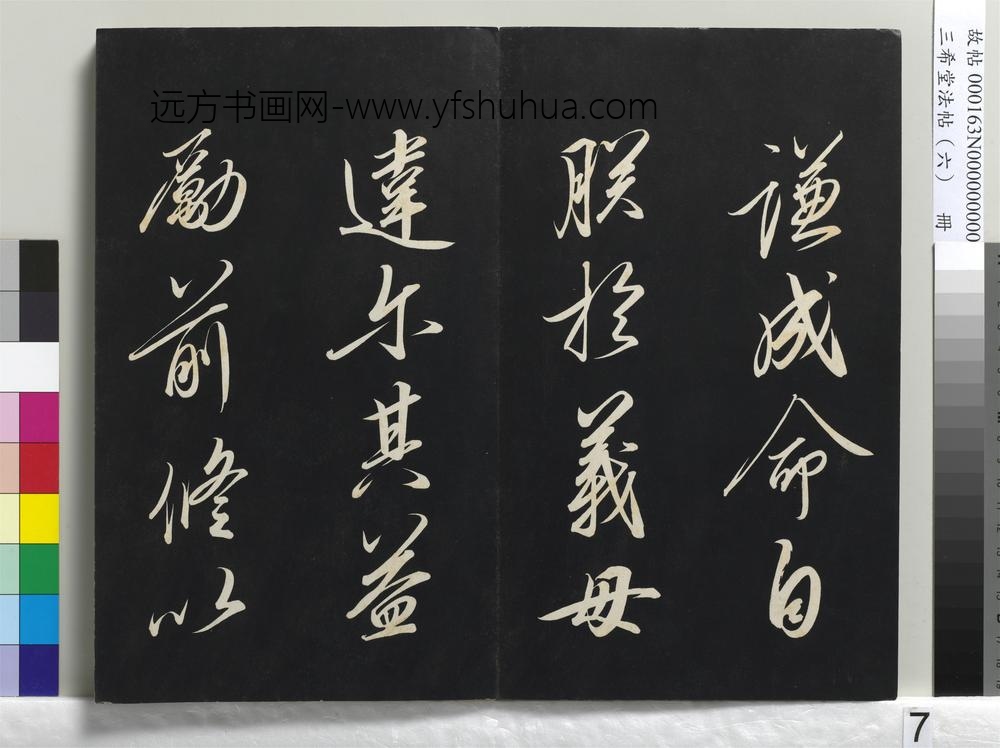 远方书画网-www.yfshuhua.com
謙成命自
朕於義毋
違尔其益
勵前修以
故帖 000163N000000000
三希堂法帖（六） 冊
7